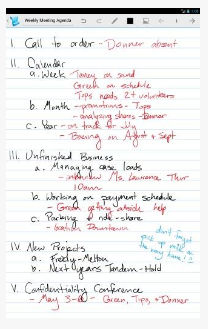 Weekly Meeting Agenda
I. Call to order - Donner absent
II. Calendar
a. Week - Money on Sand
Green on schedule
Tops needs 2+ volunteers
b. Month - promotions - Tops
- analyzing shares - Donner
c. Year - on track for July
- Boeing on August + Sept
III. Unfinished Business
a. Managing case loads
- interview Ms. Lawrence Thur
10am
b. Working on payment schedule
- Green getting outside help
c. Parking + ride-share
- location Downtown
don't forget
pick up milk on
the way home!!
IV. New Projects
a. Freddy-Melton
b. Next years Tandem-Hold
V. Confidentiality Conference
- May 3- - Green, Tips, + Donner